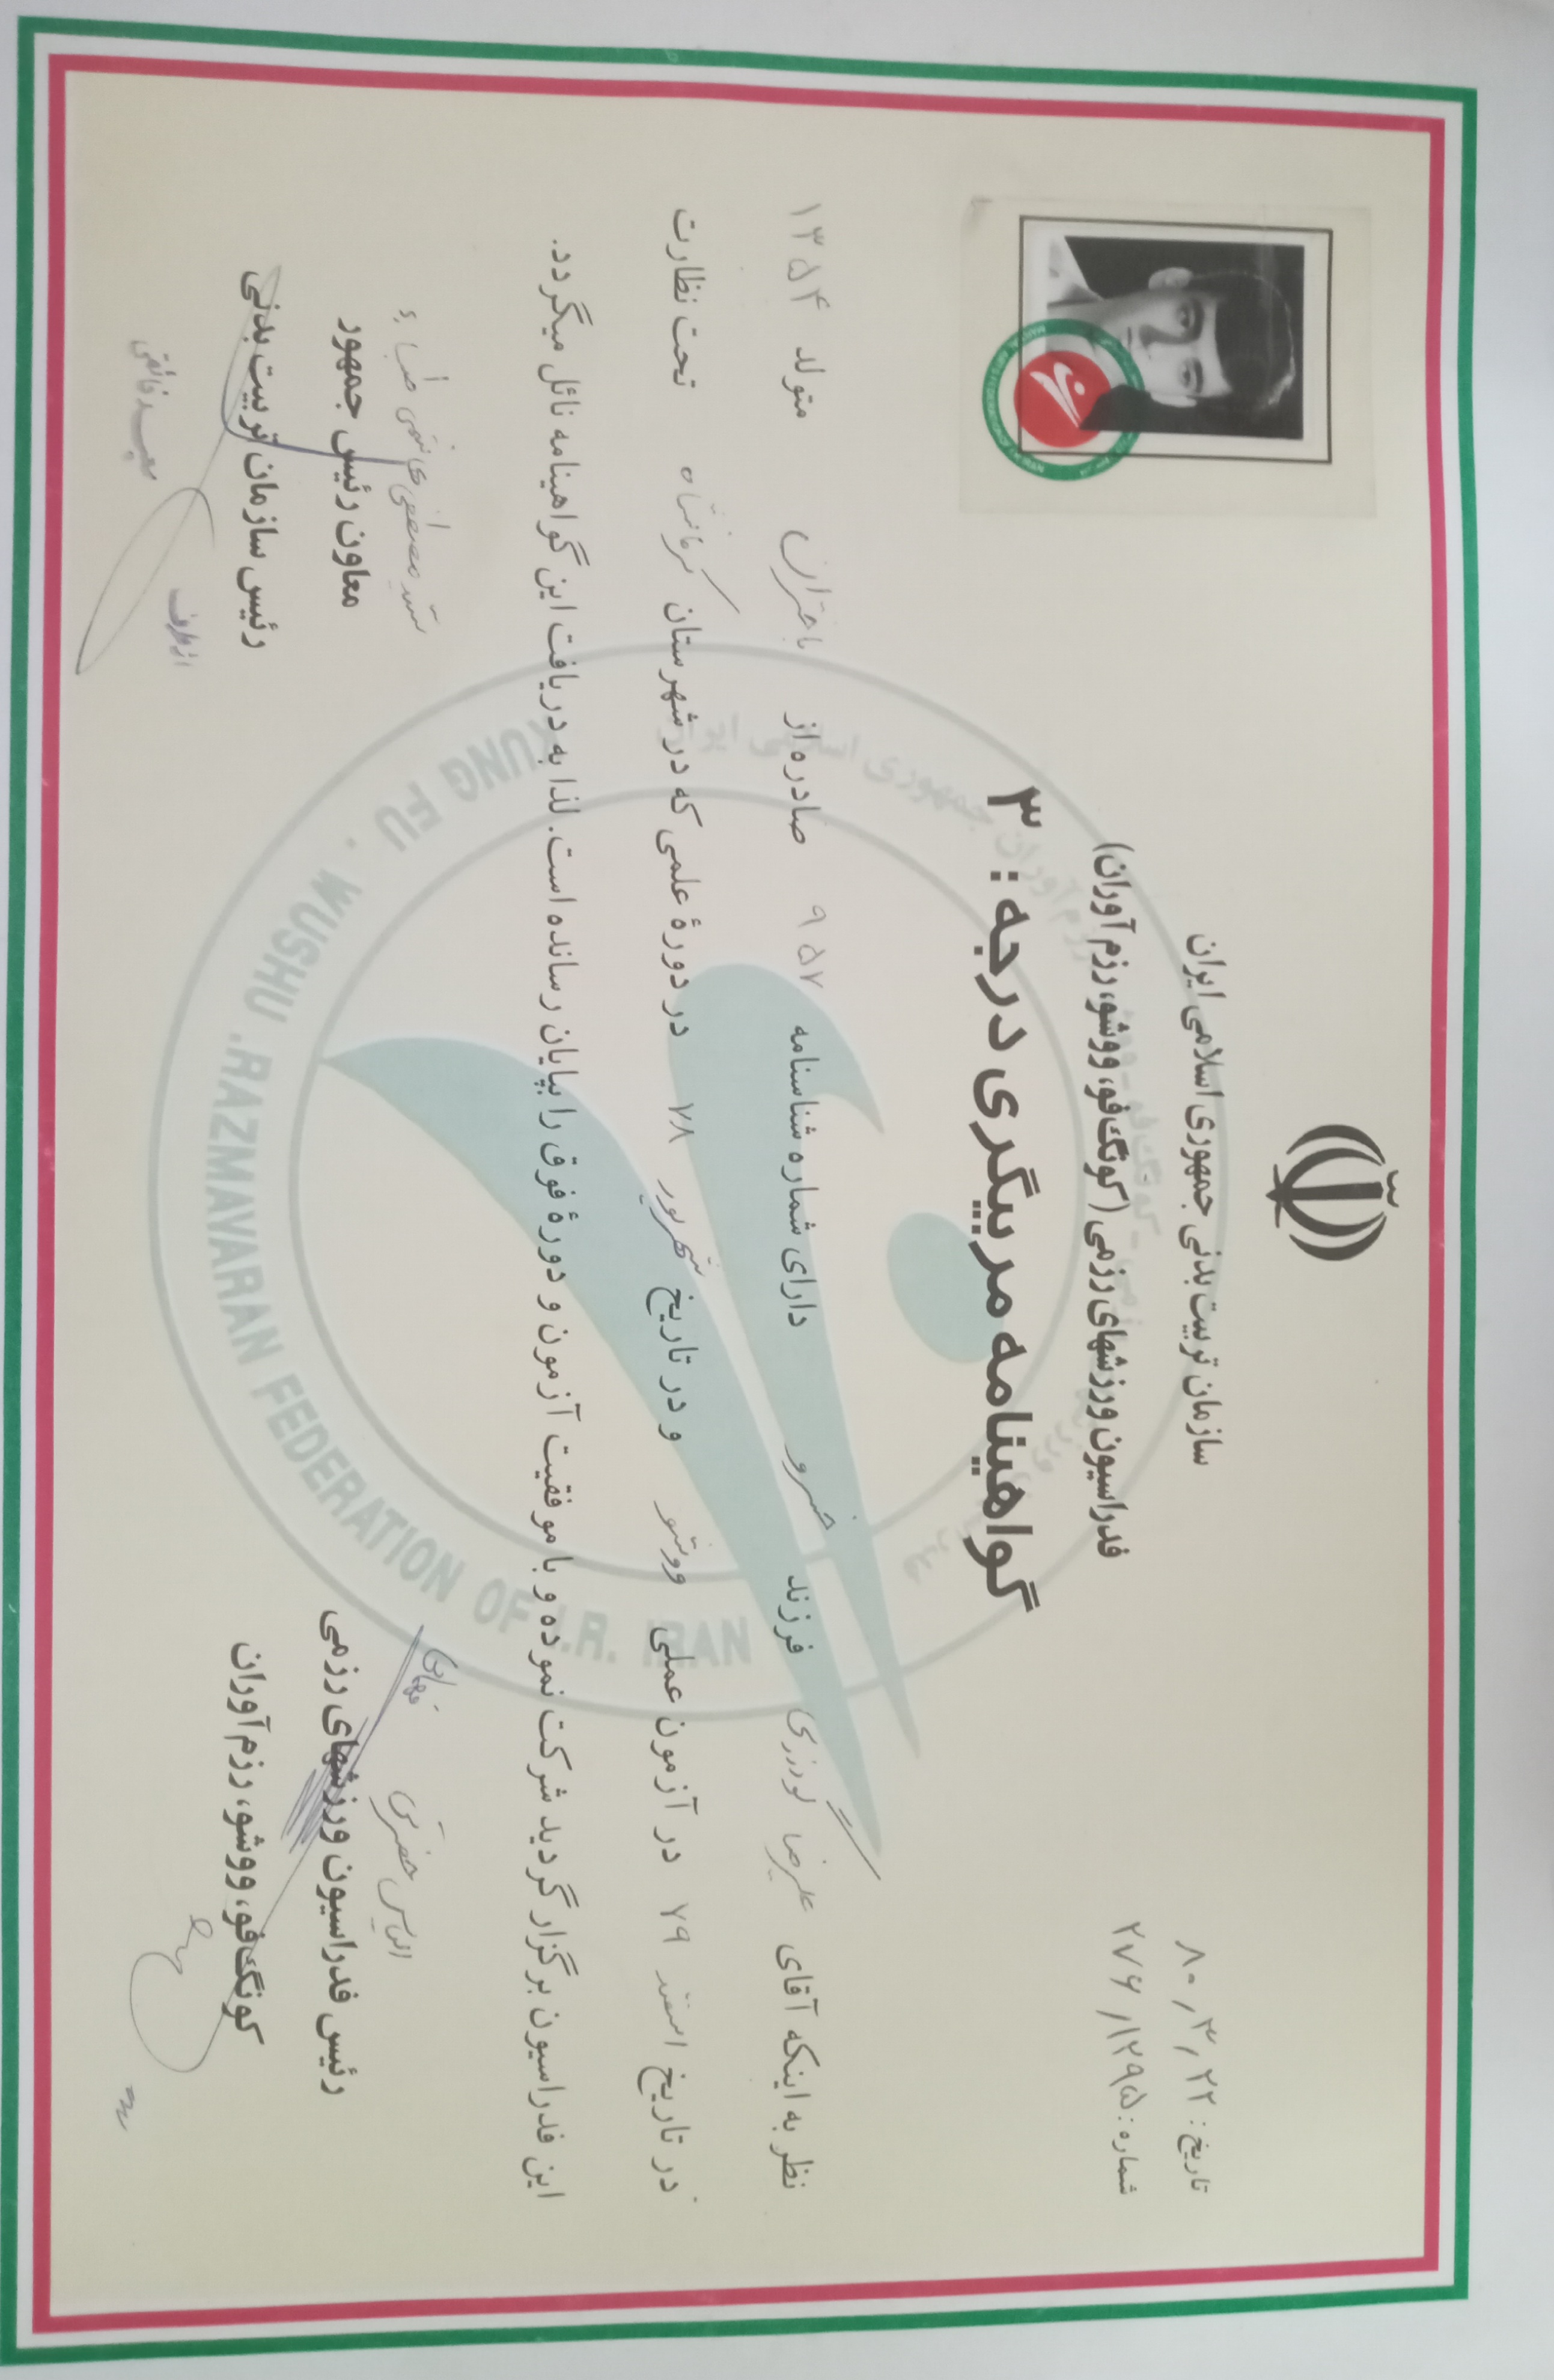 سازمان تربیت بدنی جمهوری اسلامی ایران
فدراسیون ورزشهای رزمی (کونگ‌فو، ووشو، رزم آوران)
گواهینامه مربیگری درجه : ۳
تاریخ : ۸۰/۳/۲۲
شماره : ۲۷۶/۱۲۹۵
نظر به اینکه آقای علیرضا گودرزی فرزند خسرو دارای شماره شناسنامه ۹۵۷ صادره از باختران متولد ۱۳۵۴
در تاریخ اسفند ۷۹ در آزمون عملی ووشو و در تاریخ شهریور ۷۸ در دورهٔ علمی که در شهرستان کرمانشاه تحت نظارت
این فدراسیون برگزار گردید شرکت نموده و با موفقیت آزمون و دورهٔ فوق را بپایان رسانده است. لذا به دریافت این گواهینامه نائل میگردد.
الیاس حضرتی
رئیس فدراسیون ورزشهای رزمی
کونگ‌فو، ووشو، رزم‌آوران
سید مصطفی هاشمی طبا
معاون رئیس جمهور
رئیس سازمان تربیت بدنی
از طرف
سعید فائقی
KUNG FU . WUSHU . RAZMAVARAN FEDERATION OF I.R. IRAN